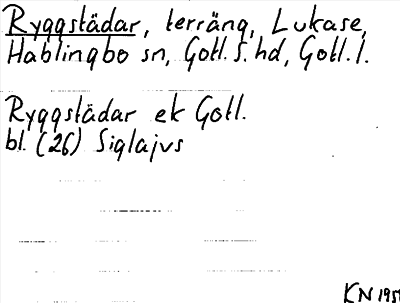 Ryggstädar, terräng, Lukase,
Hablingbo sn, Gotl. S. hd, Gotl. l.
Ryggstädar ek Gotl.
bl. (26) Siglajvs